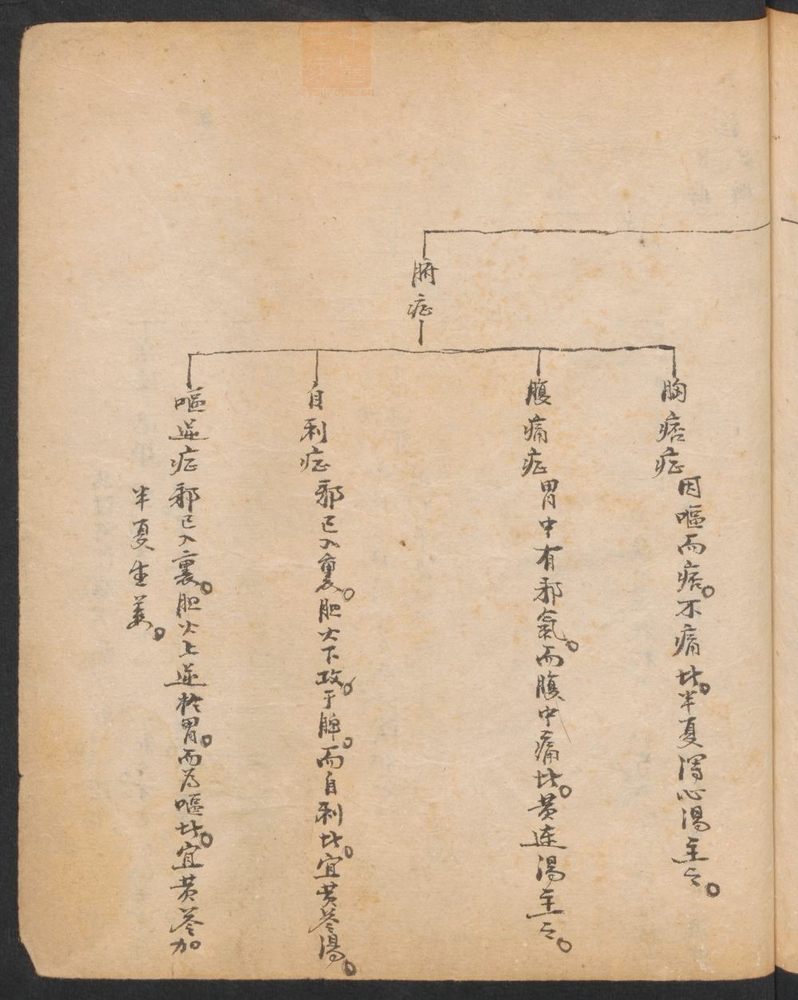 腑症
胸痞症因嘔而痞。不痛者。半夏瀉心湯主之。
腹痛症胃中有邪氣。而腹中痛者。黄連湯主之。
自利症邪已入裏。胆火下攻于脾。而自利者。宜黄芩湯。
嘔逆症邪已入裏。胆火上逆於胃。而为嘔者。宜黄芩加。
半夏生姜。